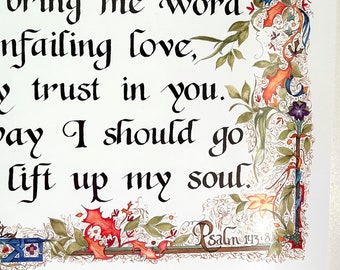 bring me word
unfailing love,
y trust in you.
way I should go
lift up my soul.
Psalm 143:8